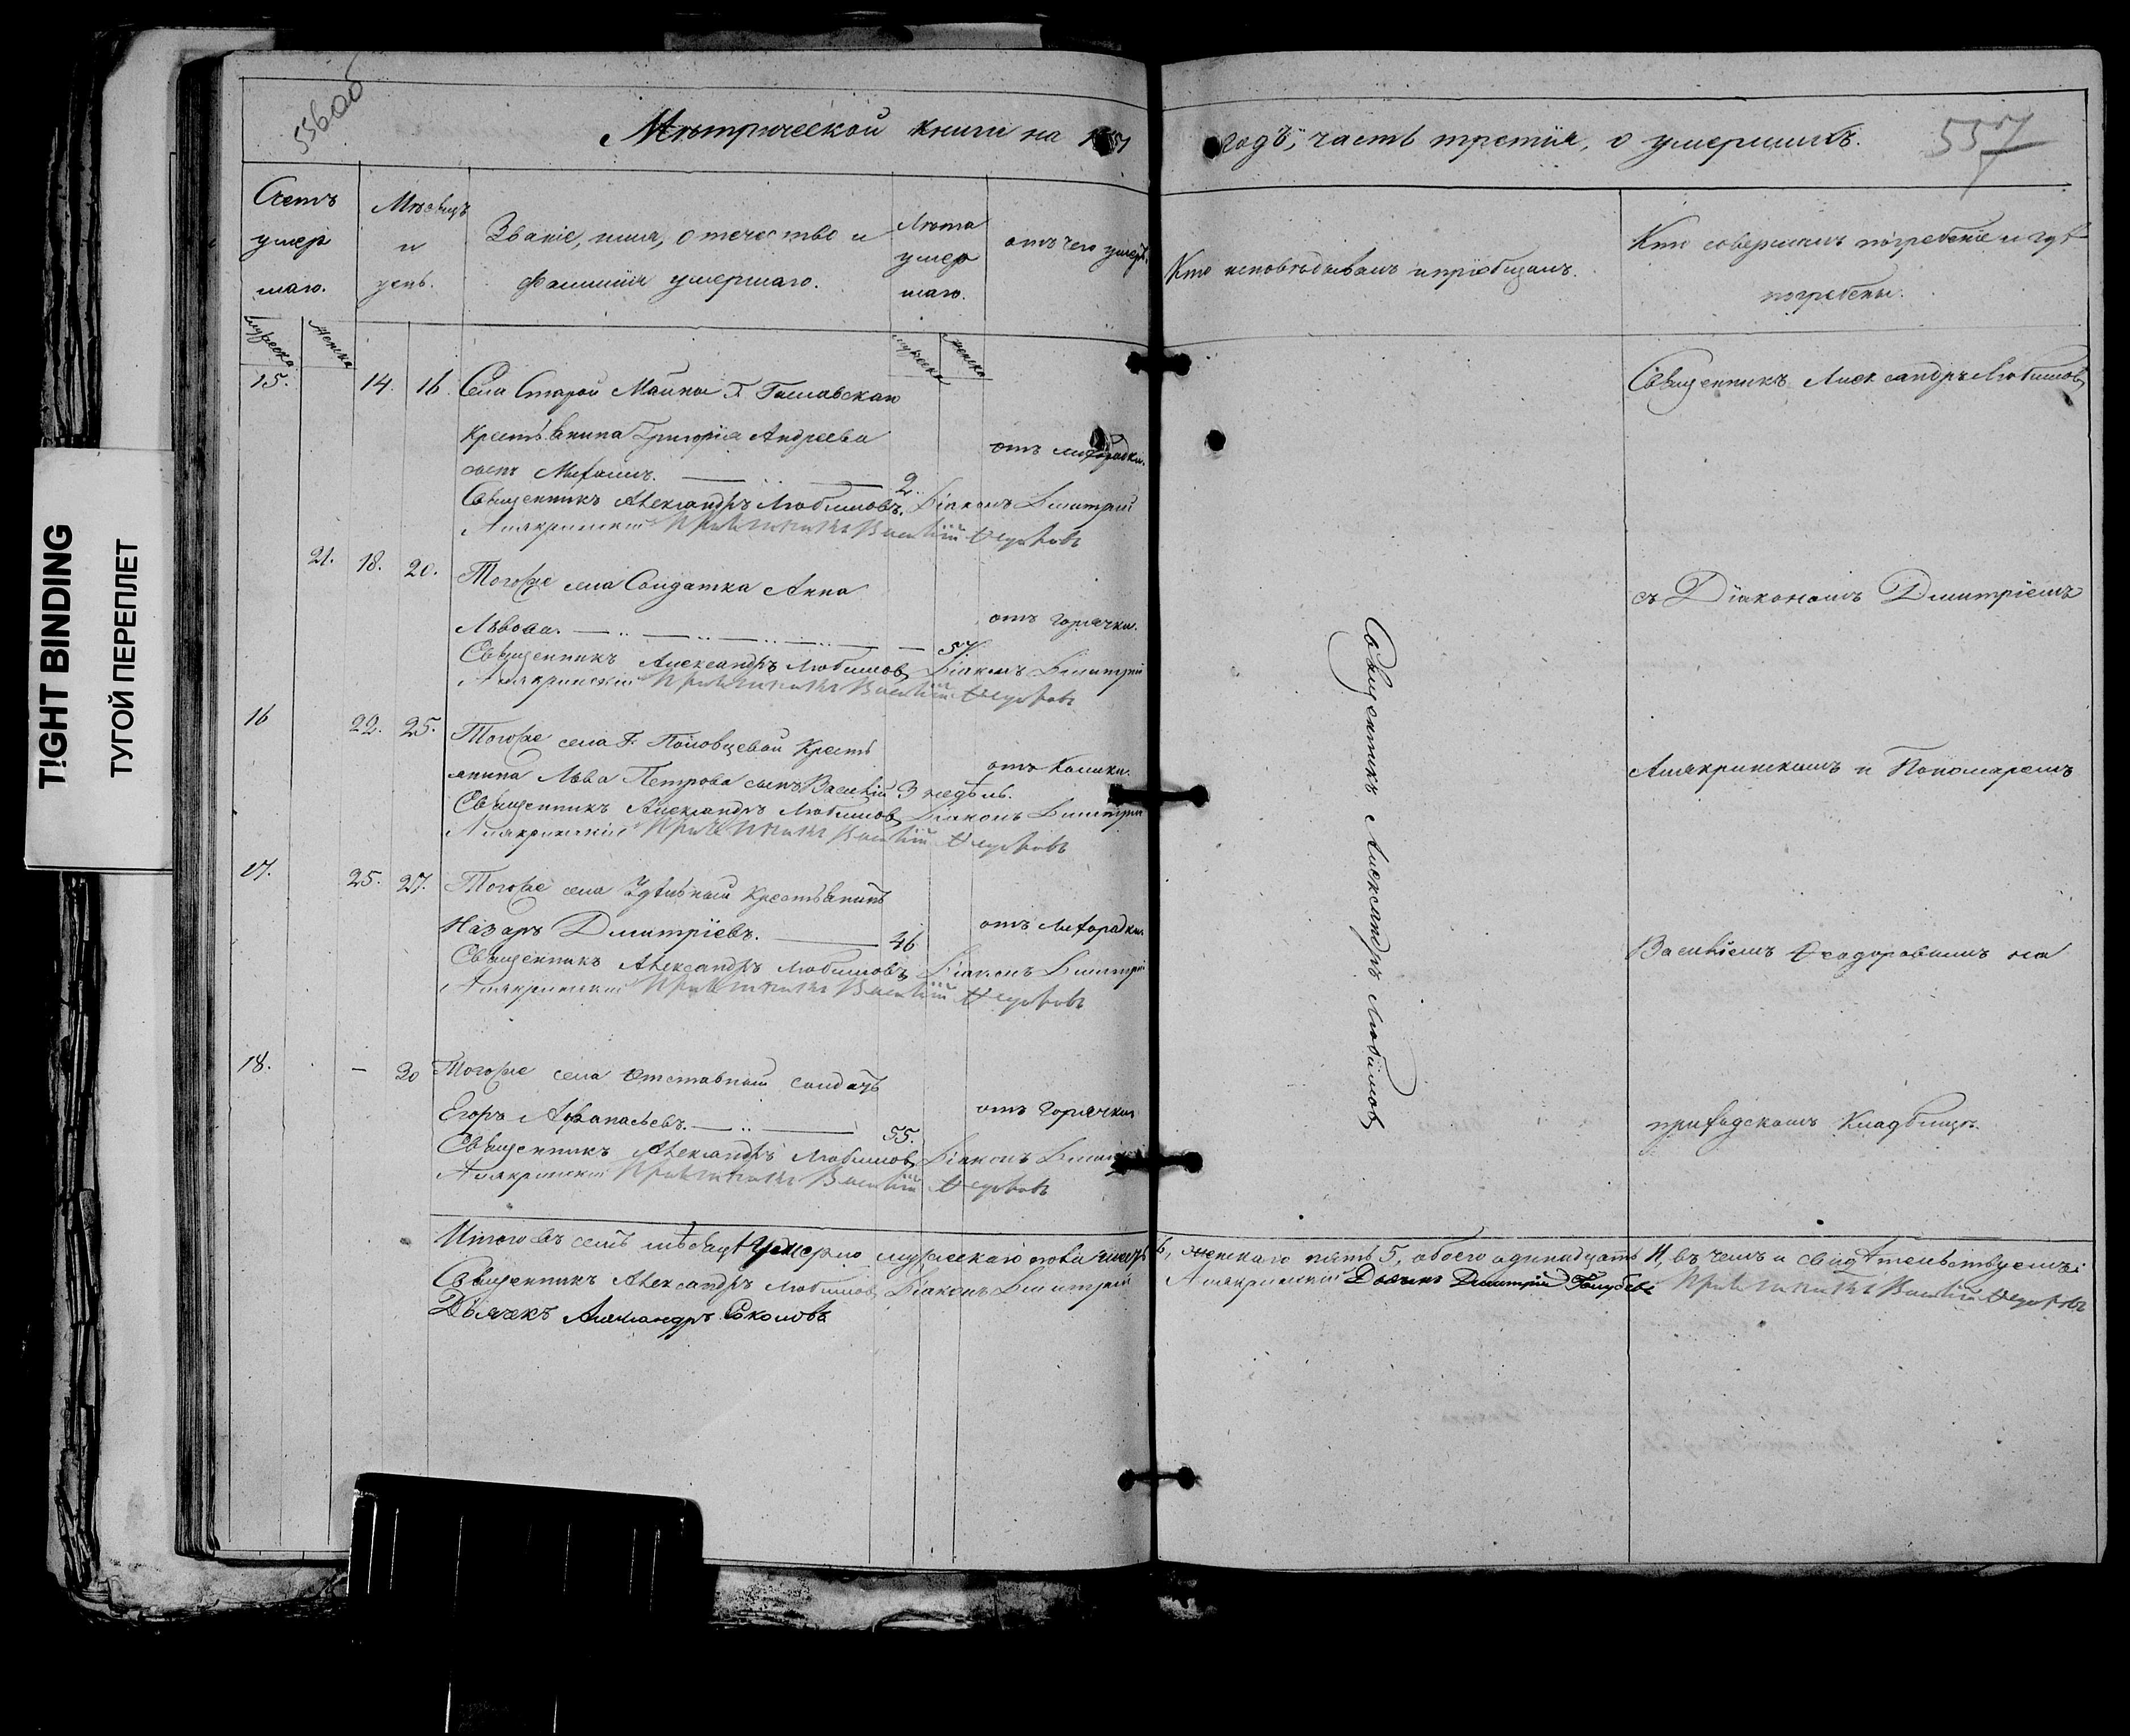 556об
TIGHT BINDING
ТУГОЙ ПЕРЕПЛЕТ
Метрической книги на 1851
годъ, часть третія, о умершихъ.
557
Счетъ умер шаго.
Мѣсяцъ и день.
Званіе, имя, отечество и фамилія умершаго.
Лѣта умер шаго.
отъ чего умеръ.
Кто исповѣдывалъ и пріобщалъ.
Кто совершалъ погребеніе и гдѣ погребены.
мужеска
женска
мужеска
женска
15. 14. 16. Села Старой Майны Г.
крестьянина Григорія Андреева
сынъ Михаилъ. 2. отъ лихорадки.
Священникъ Александръ Любимовъ. Діаконъ Димитрій
Василій Ѳедоровъ
21. 18. 20. Тогоже села Солдатка Анна
Львова. 57. отъ горячки.
Священникъ Александръ Любимовъ Діаконъ Димитрій
Василій Ѳедоровъ
16 22. 25. Тогоже села Г. Половцевой кресть
янина Льва Петрова сынъ Василій 3 недѣль. отъ Колики.
Священникъ Александръ Любимовъ Діаконъ Димитрій
Василій Ѳедоровъ
17. 25. 27. Тогоже села Удѣльный крестьянинъ
Назаръ Дмитріевъ. 46 отъ лихорадки.
Священникъ Александръ Любимовъ Діаконъ Димитрій
Василій Ѳедоровъ
18. — 30 Тогоже села Отставный солдатъ
Егоръ Аѳанасьевъ. 55. отъ горячки
Священникъ Александръ Любимовъ Діаконъ Димитрій
Василій Ѳедоровъ
Священникъ Александръ Любимовъ
Священникъ Александръ Любимовъ
съ Діакономъ Дмитріемъ
и Пономаремъ
Василіемъ Ѳеодоровымъ на
приходскомъ Кладбищѣ.
Итого въ семъ мѣсяцѣ Умерло мужескаго пола шесть 6, женскаго пять 5, обоего одинадцать 11, въ чемъ и свидѣтельствуемъ:
Священникъ Александръ Любимовъ Діаконъ Димитрій Дьячекъ Димитрій Голубевъ Василій Ѳедоровъ
Дьячекъ Александръ Соколовъ